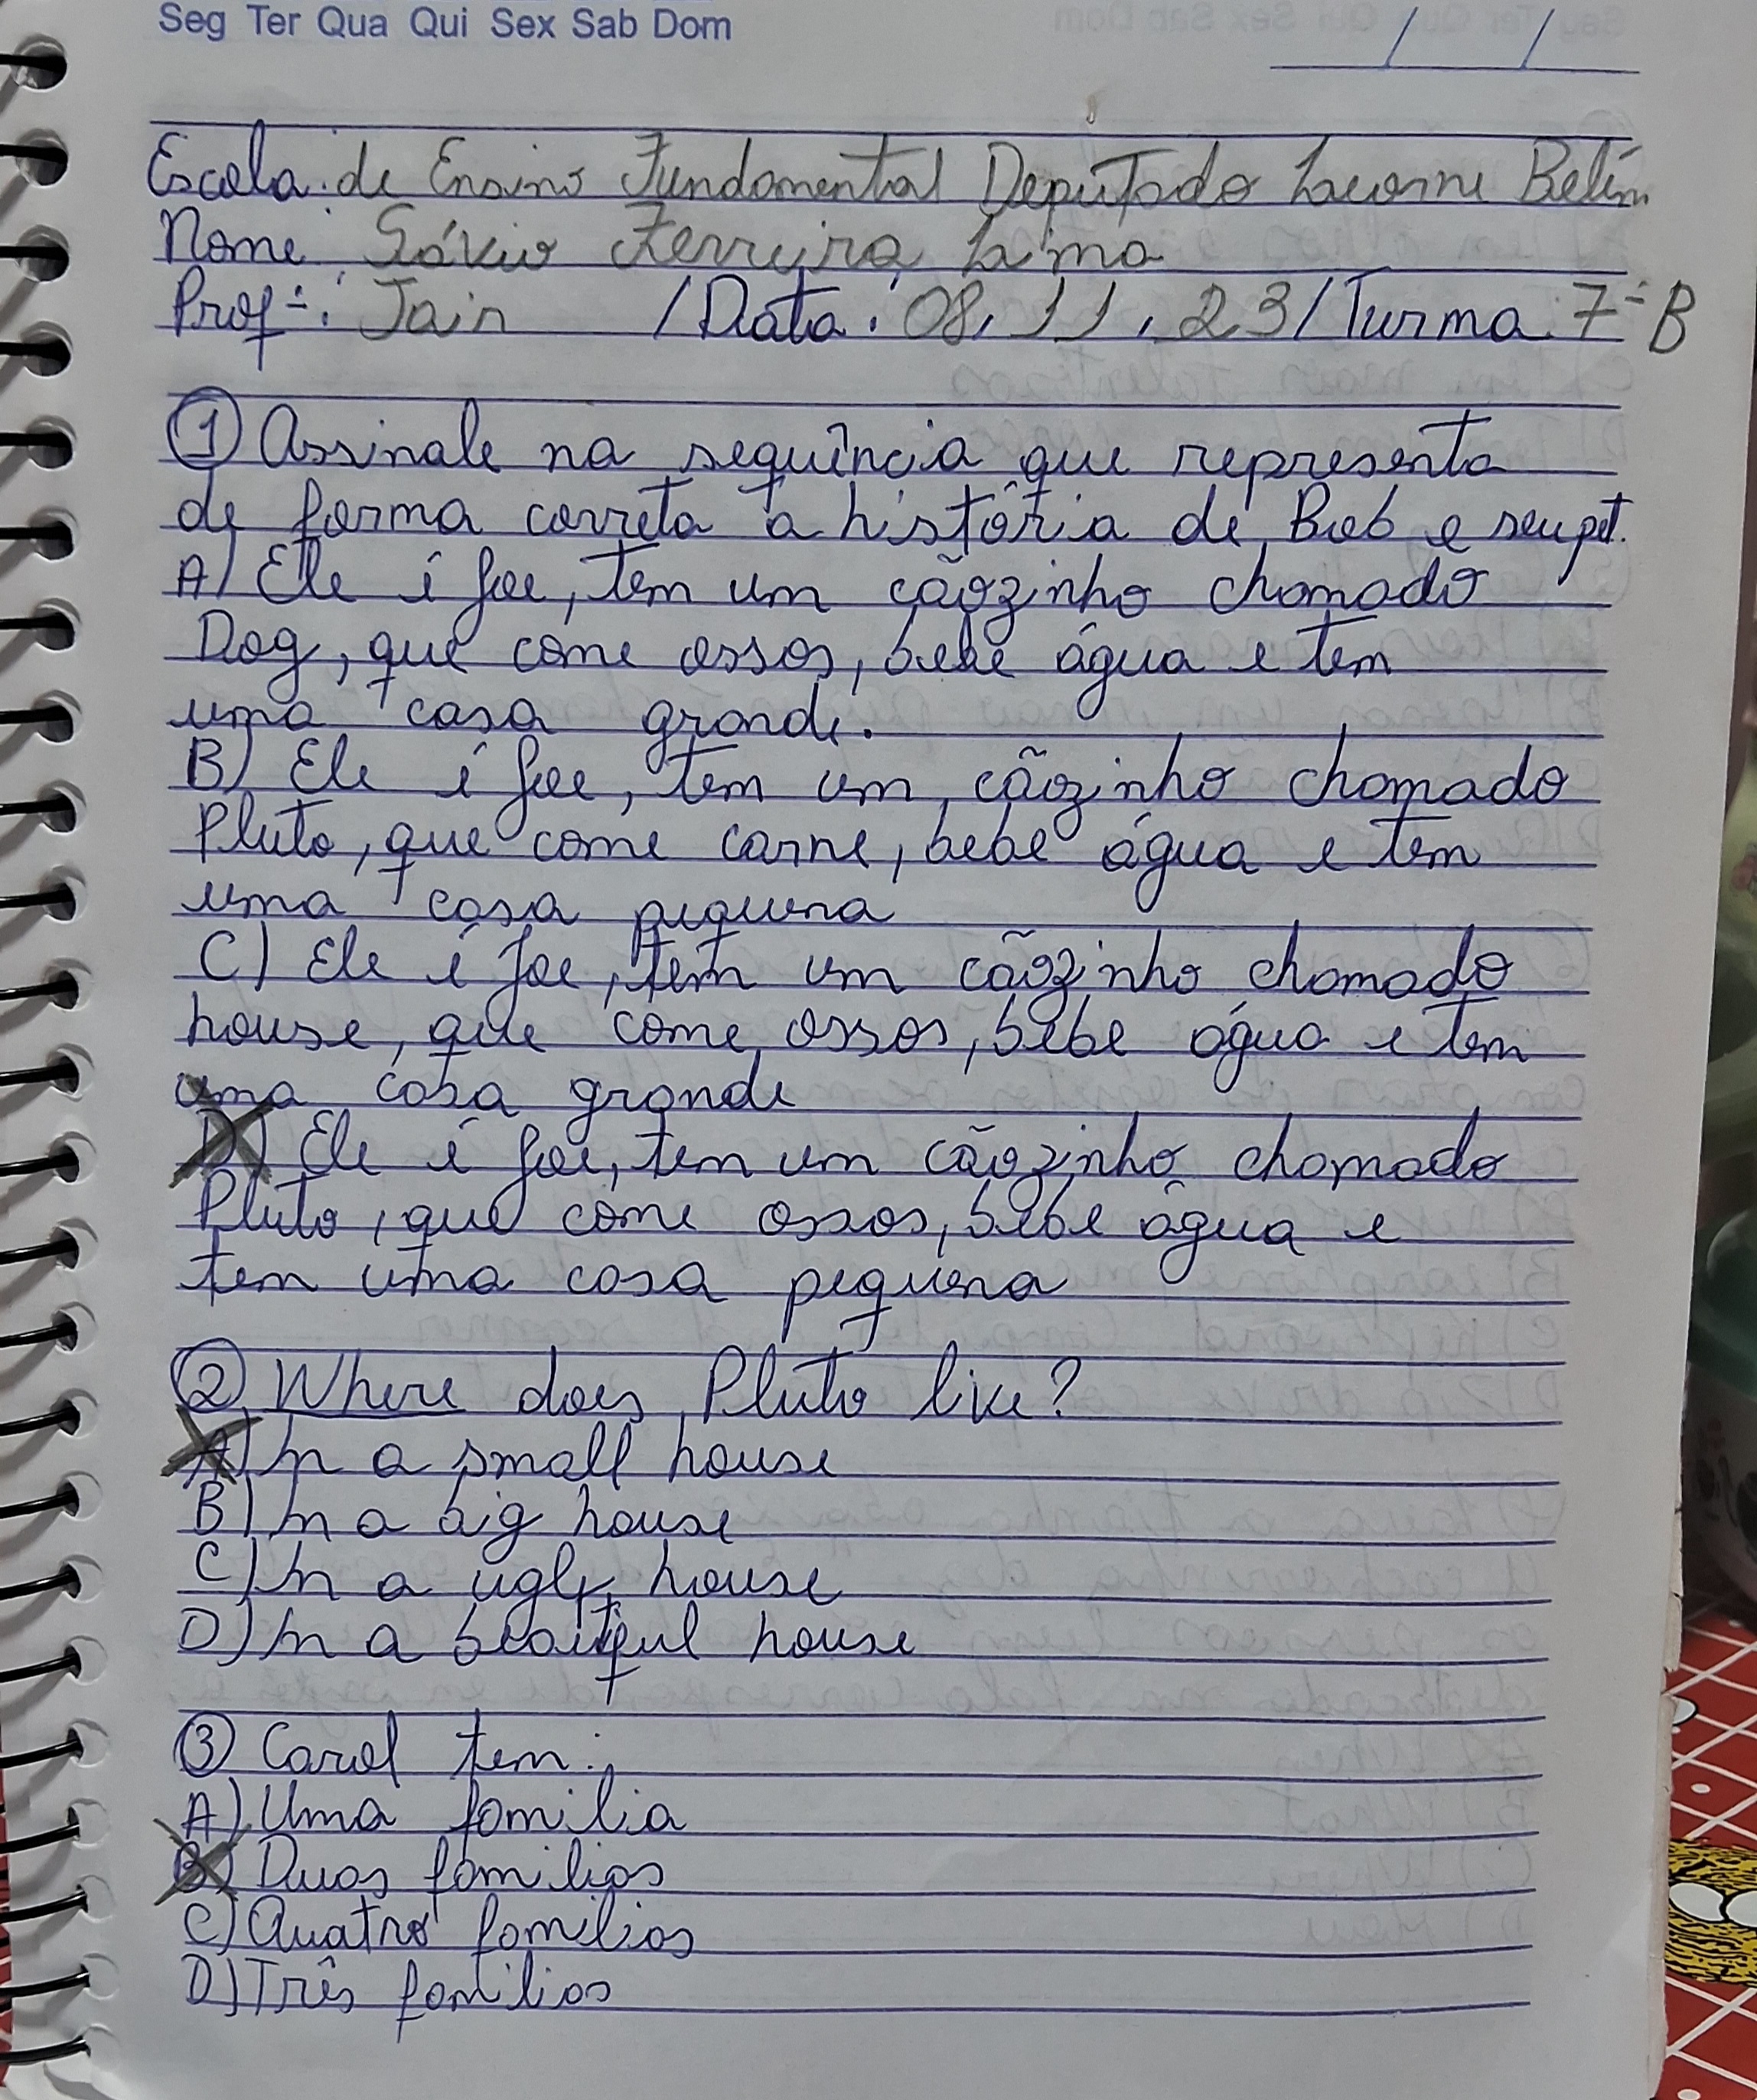 Seg Ter Qua Qui Sex Sab Dom
/ /
Escola: de Ensino Fundamental Deputado Leorne Belém
Nome: Sávio Ferreira Lima
Profª: Jair / Data: 08, 11, 23 / Turma: 7º B
① Assinale na sequência que representa
de forma correta a história de Bob e seu pet.
A) Ele é Joe, tem um cãozinho chamado
Dog, que come ossos, bebe água e tem
uma casa grande.
B) Ele é Joe, tem um cãozinho chamado
Pluto, que come carne, bebe água e tem
uma casa pequena
C) Ele é Joe, tem um cãozinho chamado
house, que come ossos, bebe água e tem
uma casa grande
D) Ele é Joe, tem um cãozinho chamado
Pluto, que come ossos, bebe água e
tem uma casa pequena
② Where does Pluto live?
A) In a small house
B) In a big house
C) In a ugly house
D) In a beatiful house
③ Carol tem:
A) Uma familia
B) Duas familias
C) Quatro familias
D) Três familias